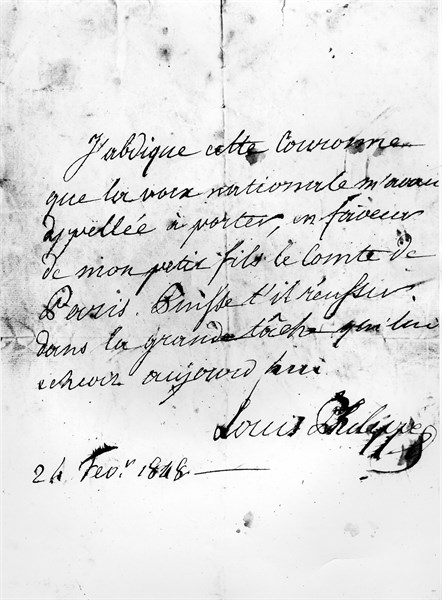 J'abdique cette Couronne
que la voix nationale m'avait
appellée à porter, en faveur
de mon petit fils le Comte de
Paris. Puisse t'il réussir
dans la grande tâche qui lui
echoit aujourd'hui
Louis Philippe
24 Fevr. 1848